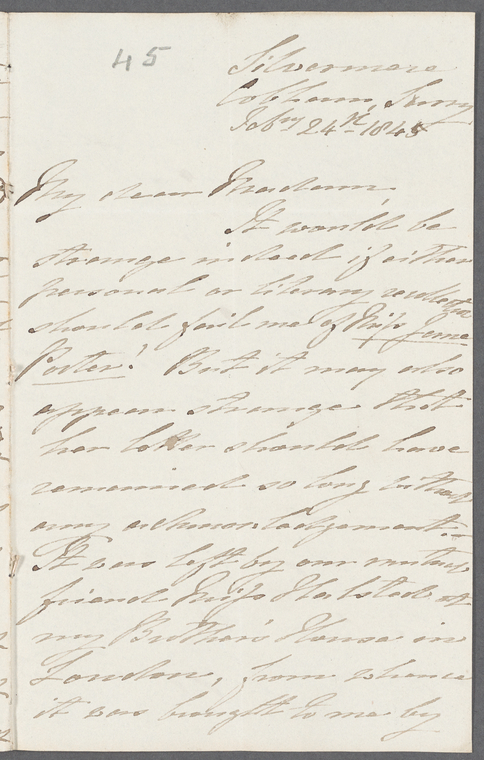 45
Silvermere
Cobham, Surry
Feby 24th 1845
My dear Madam,
It would be
strange indeed if either
personal or literary recollection
should fail me of Miss Jane
Porter! But it may also
appear strange that
her letter should have
remained so long without
any acknowledgement.
It was left by our mutual
friend Miss Halsted at
my Brother's House in
London, from whence
it was brought to me by